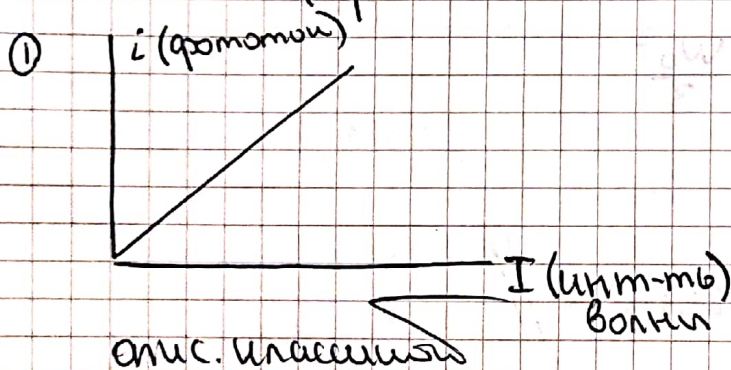 ① i (фототок)
I (инт-ть)
волны
опис. классикой